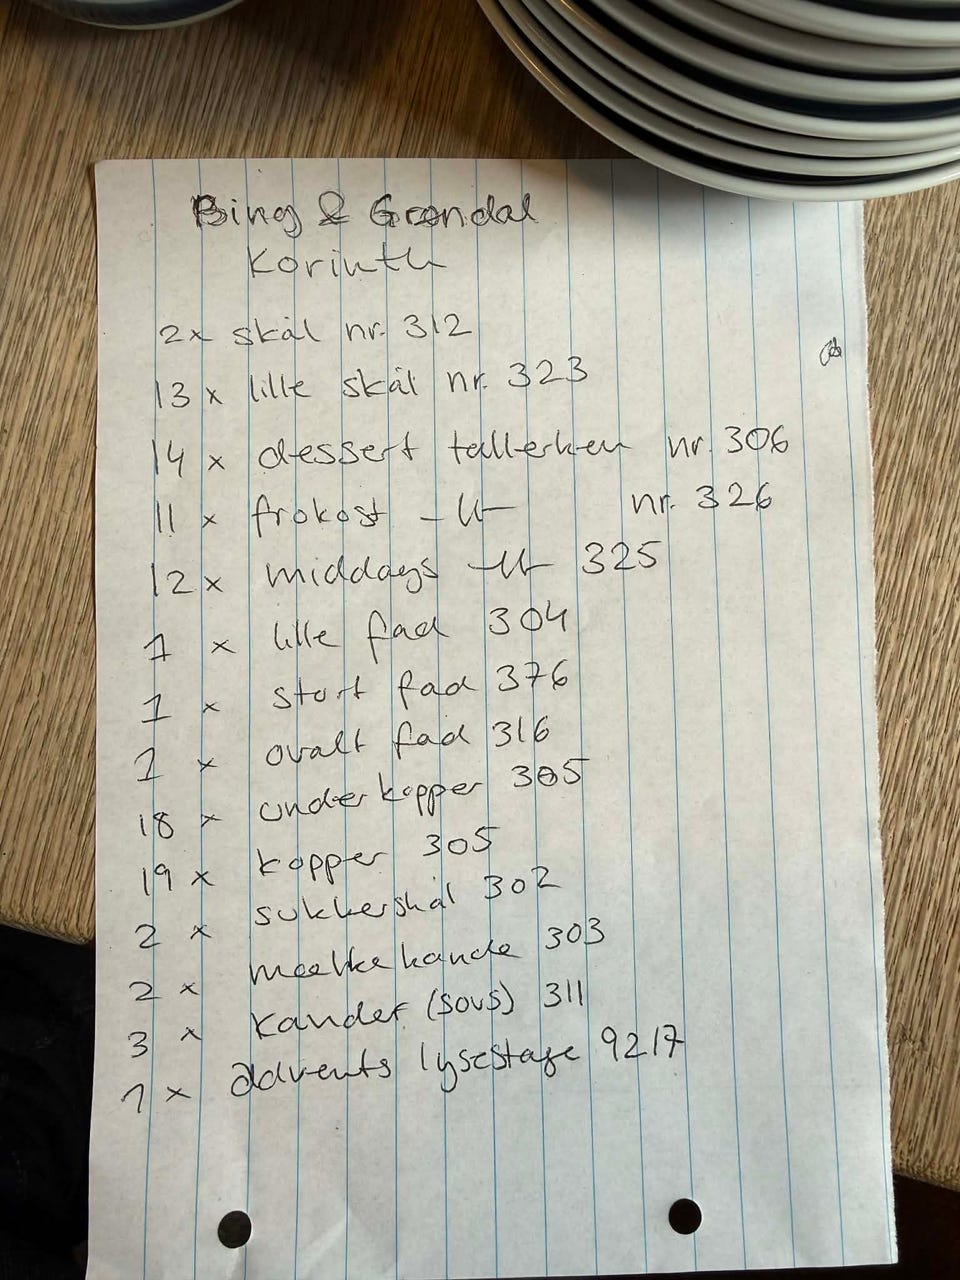 Bing & Grøndal
Korinth
2x skål nr. 312
13 x lille skål nr. 323
14 x dessert tallerken nr. 306
11 x frokost -11- nr. 326
12 x middags -11- 325
1 x lille fad 304
1 x stort fad 376
1 x ovalt fad 316
18 x underkopper 305
19 x kopper 305
2 x sukkerskål 302
2 x mælkekande 303
3 x kander (sovs) 311
1 x advents lysestage 9217